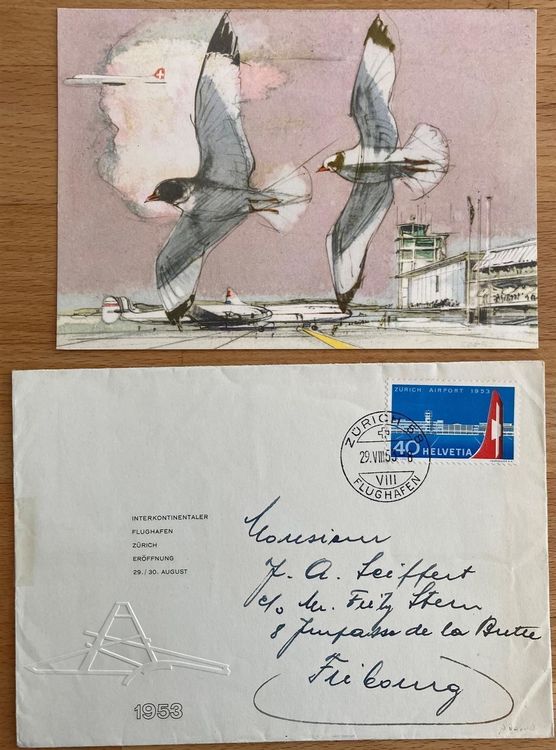 ZÜRICH AIRPORT 1953
40 HELVETIA
ZÜRICH 58
29.VIII.53-8
VIII
FLUGHAFEN
INTERKONTINENTALER
FLUGHAFEN
ZÜRICH
ERÖFFNUNG
29./30. AUGUST
1953
Monsieur
J. A. Seiffert
c/o Mr. Fritz Stern
8 Impasse de la Butte
Fribourg